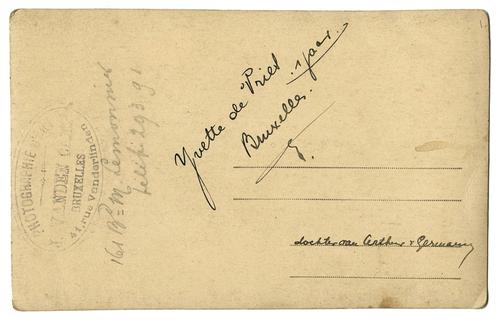 PHOTOGRAPHIE
VANDEN
BRUXELLES
41, rue Vanderlinden
161 Bd M Lemonnier
Yvette de Vriel
1 jaar.
Bruxelles.
dochter van Arthur & Germaine